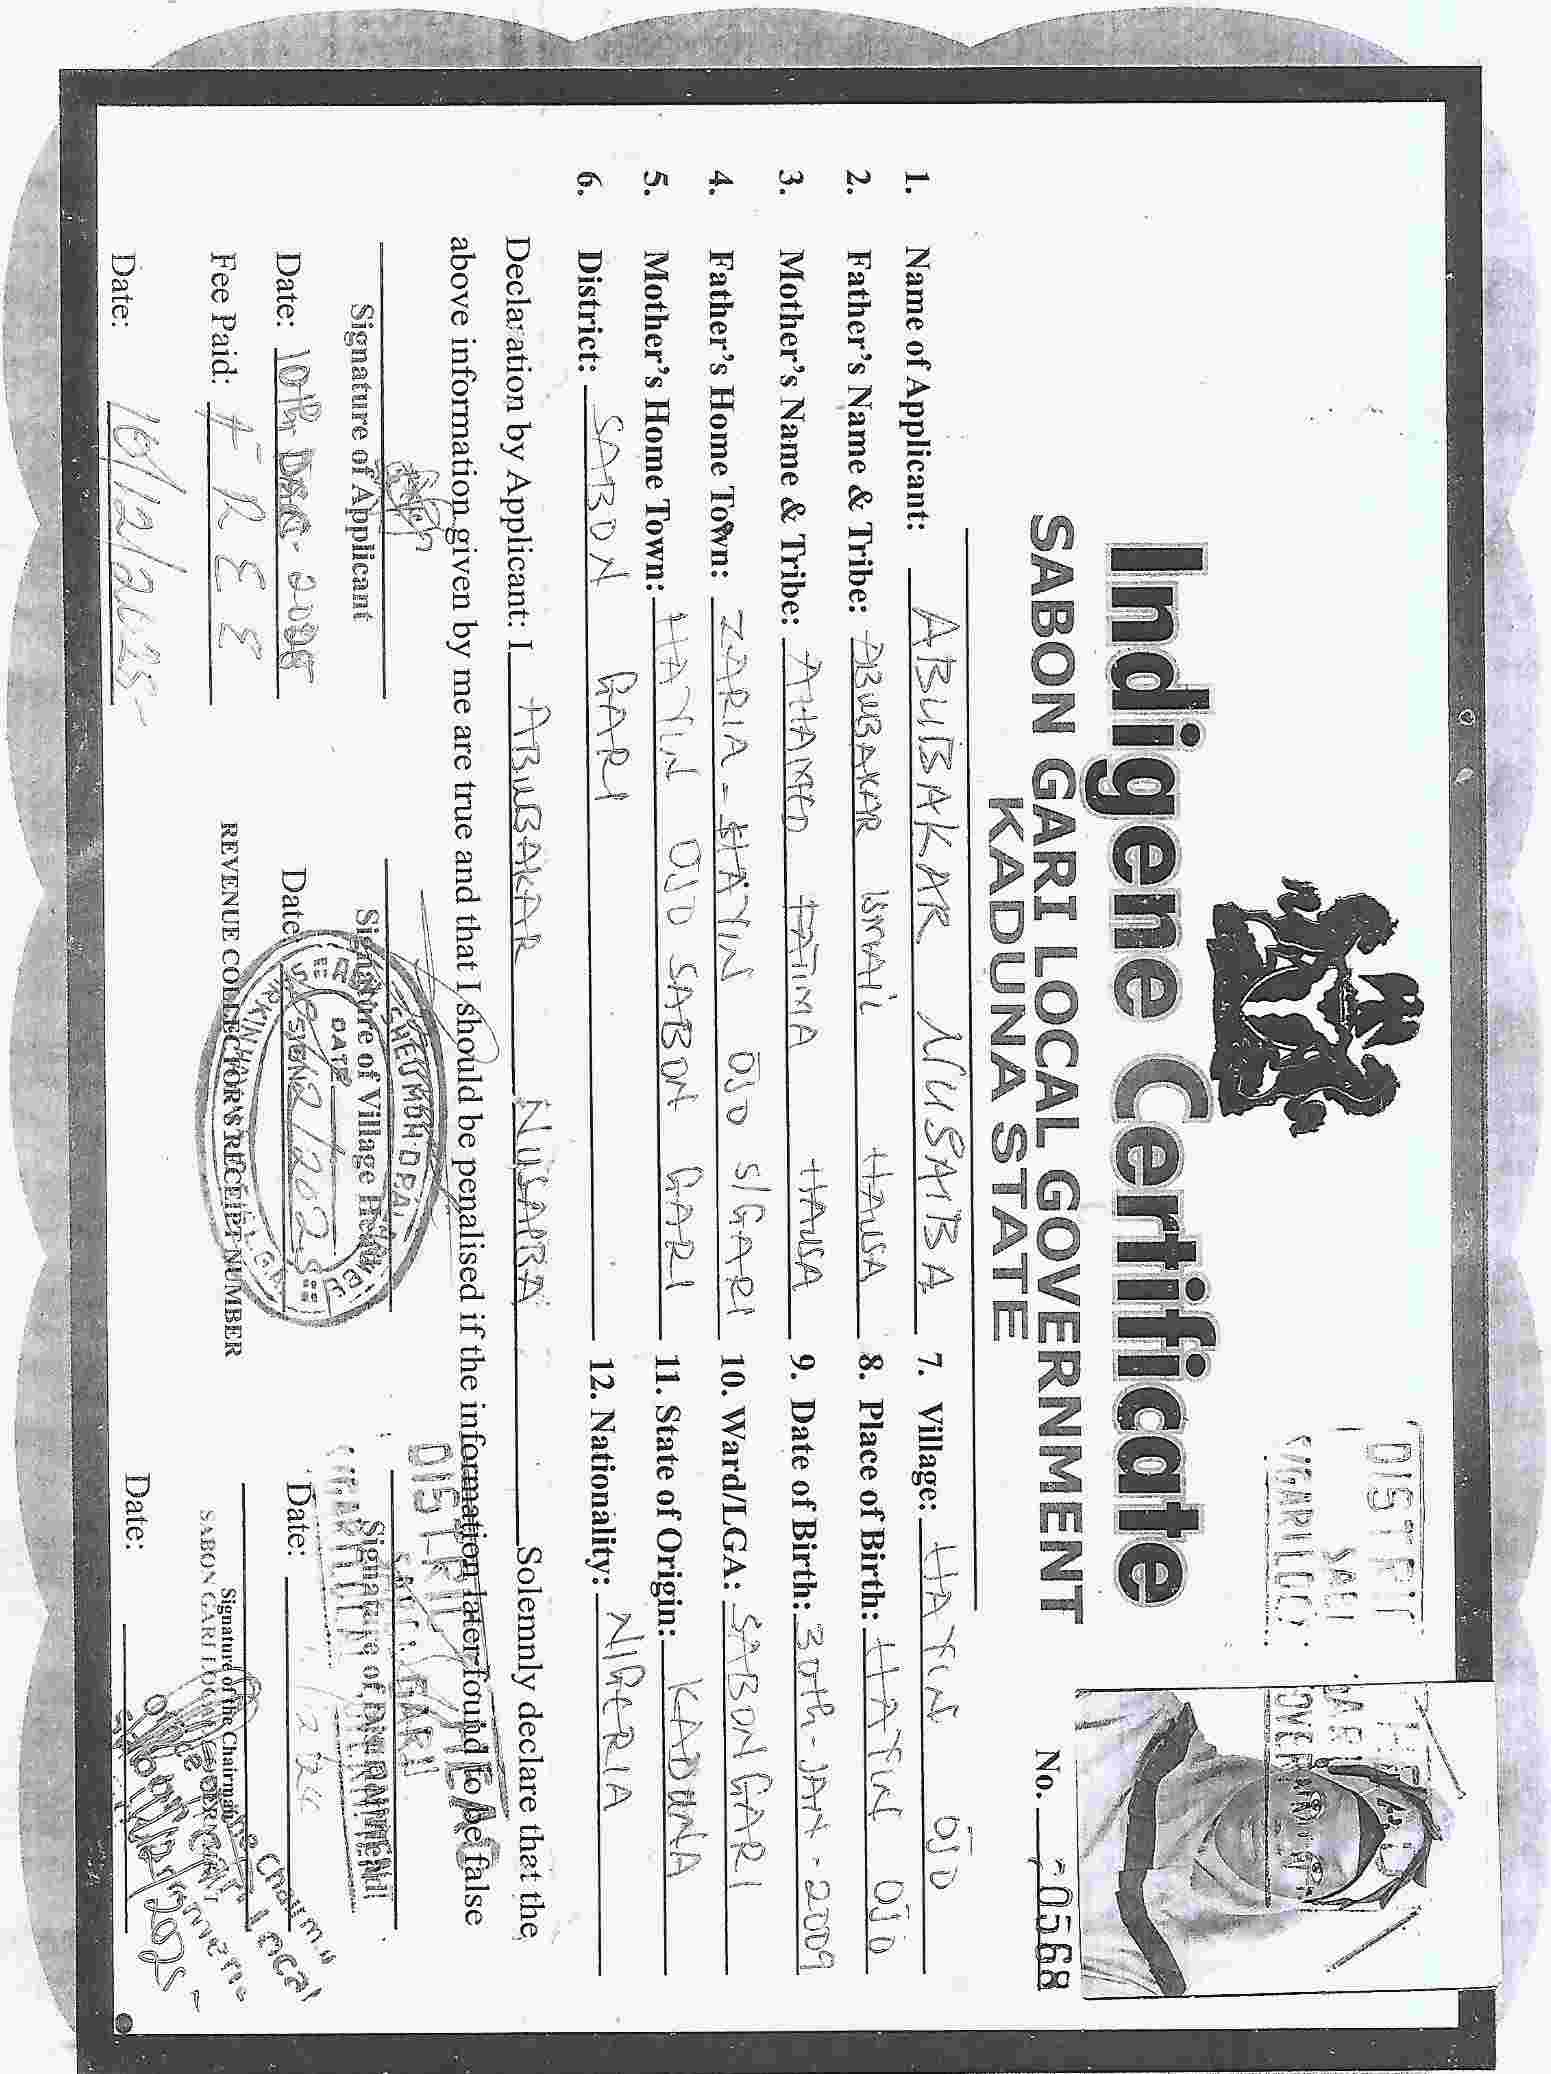 Indigene Certificate
SABON GARI LOCAL GOVERNMENT
KADUNA STATE
DISTRICT
No. 70568
1. Name of Applicant: ABUBAKAR NUSAIBA
2. Father's Name & Tribe: ABUBAKAR ISMAIL HAUSA
3. Mother's Name & Tribe: AHAMED FATIMA HAUSA
4. Father's Home Town: ZARIA - HAYIN OJO S/GARI
5. Mother's Home Town: HAYIN OJO SABON GARI
6. District: SABON GARI
7. Village: HAYIN OJO
8. Place of Birth: HAYIN OJO
9. Date of Birth: 30th - JAN - 2009
10. Ward/LGA: SABON GARI
11. State of Origin: KADUNA
12. Nationality: NIGERIA
Declaration by Applicant: I ABUBAKAR NUSAIBA Solemnly declare that the
above information given by me are true and that I should be penalised if the information later found to be false
Signature of Applicant
Date: 10th Dec. 2025
Fee Paid: FREE
Date: 10/12/2025
Signature of Village Head
Date
DATE
SIGN
REVENUE COLLECTOR'S RECEIPT NUMBER
DISTRICT HEAD
Signature of District Head
Date:
Signature of the Chairman
SABON GARI LOCAL GOVERNMENT
Date: